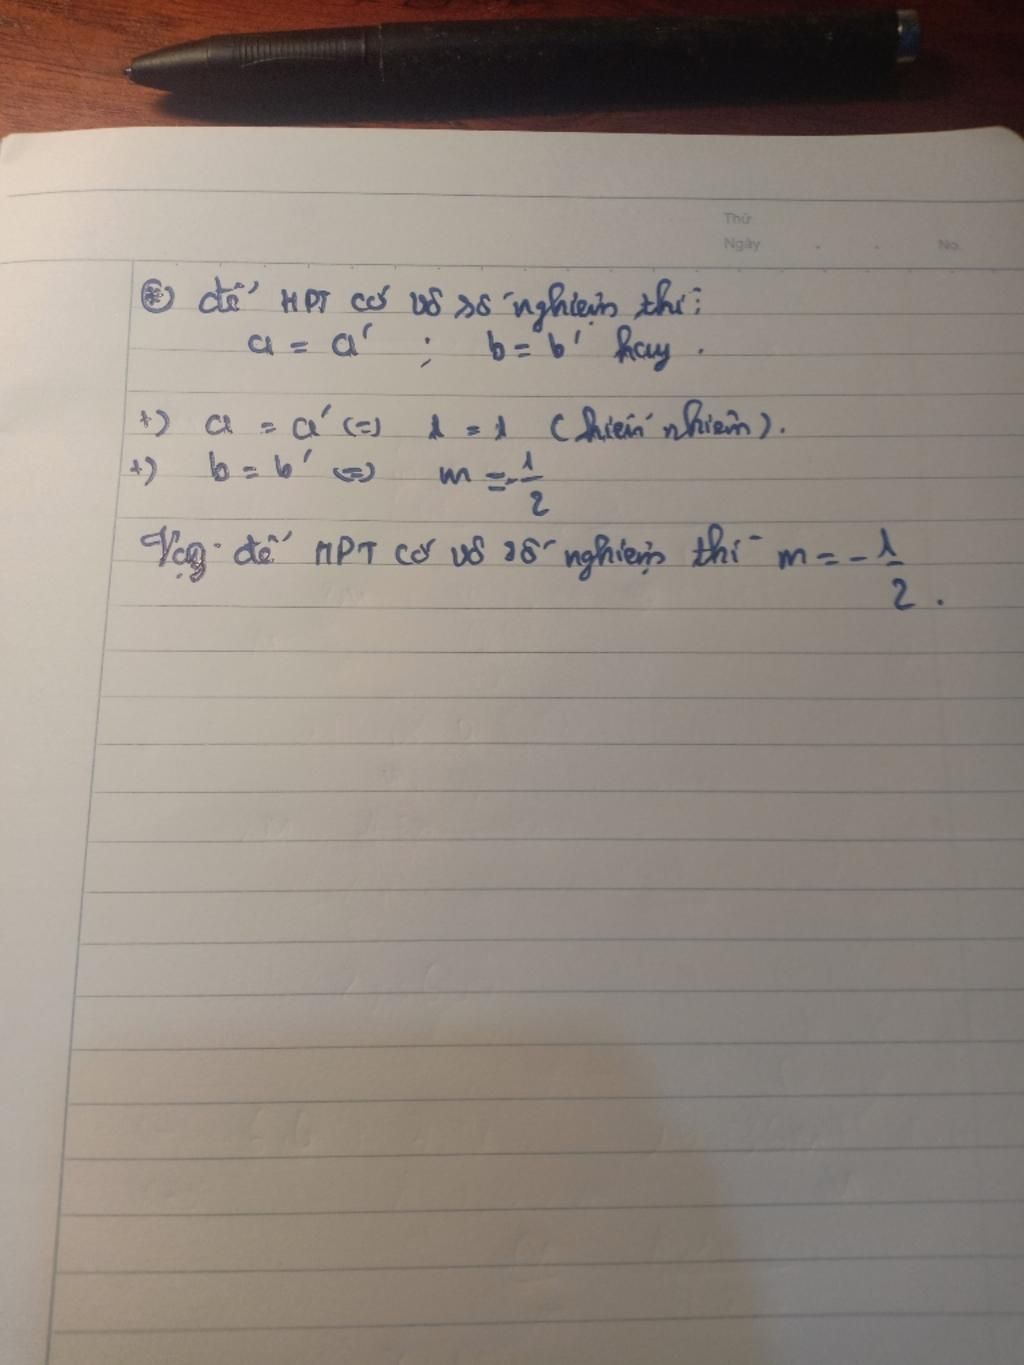 Thứ
Ngày . . No.
*) để HPT có vô số nghiệm thì:
a = a' ; b = b' hay .
+) a = a' <=> 1 = 1 (hiển nhiên).
+) b = b' <=> m = -1/2
Vậy để HPT có vô số nghiệm thì m = -1/2.